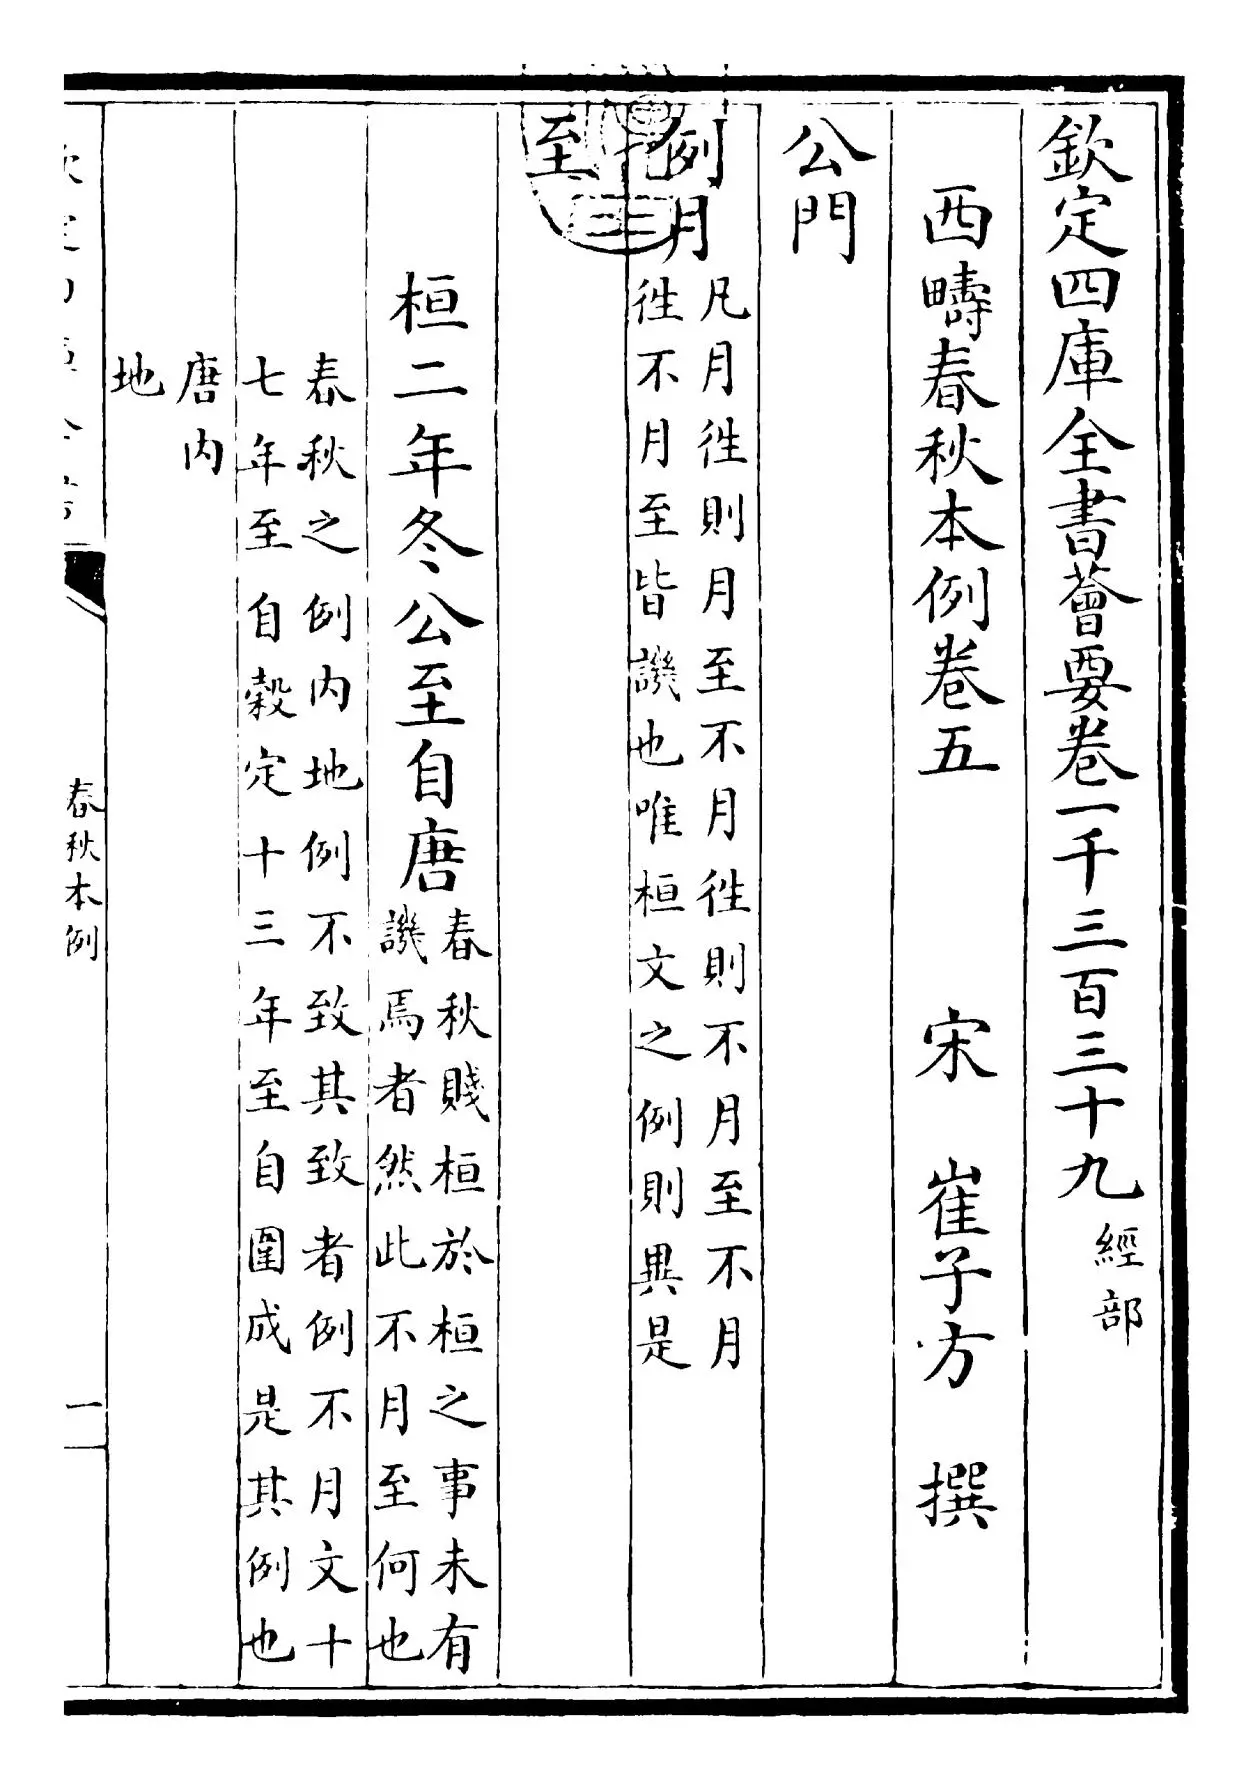 欽定四庫全書薈要卷一千三百三十九 經部
西疇春秋本例卷五 宋 崔子方 撰
公門
例月
凡月徃則月至不月徃則不月至不月
徃不月至皆譏也唯桓文之例則異是
至
桓二年冬公至自唐
春秋賤桓於桓之事未有
譏焉者然此不月至何也
春秋之例内地例不致其致者例不月文十
七年至自穀定十三年至自圍成是其例也
唐内
地
春秋本例
一